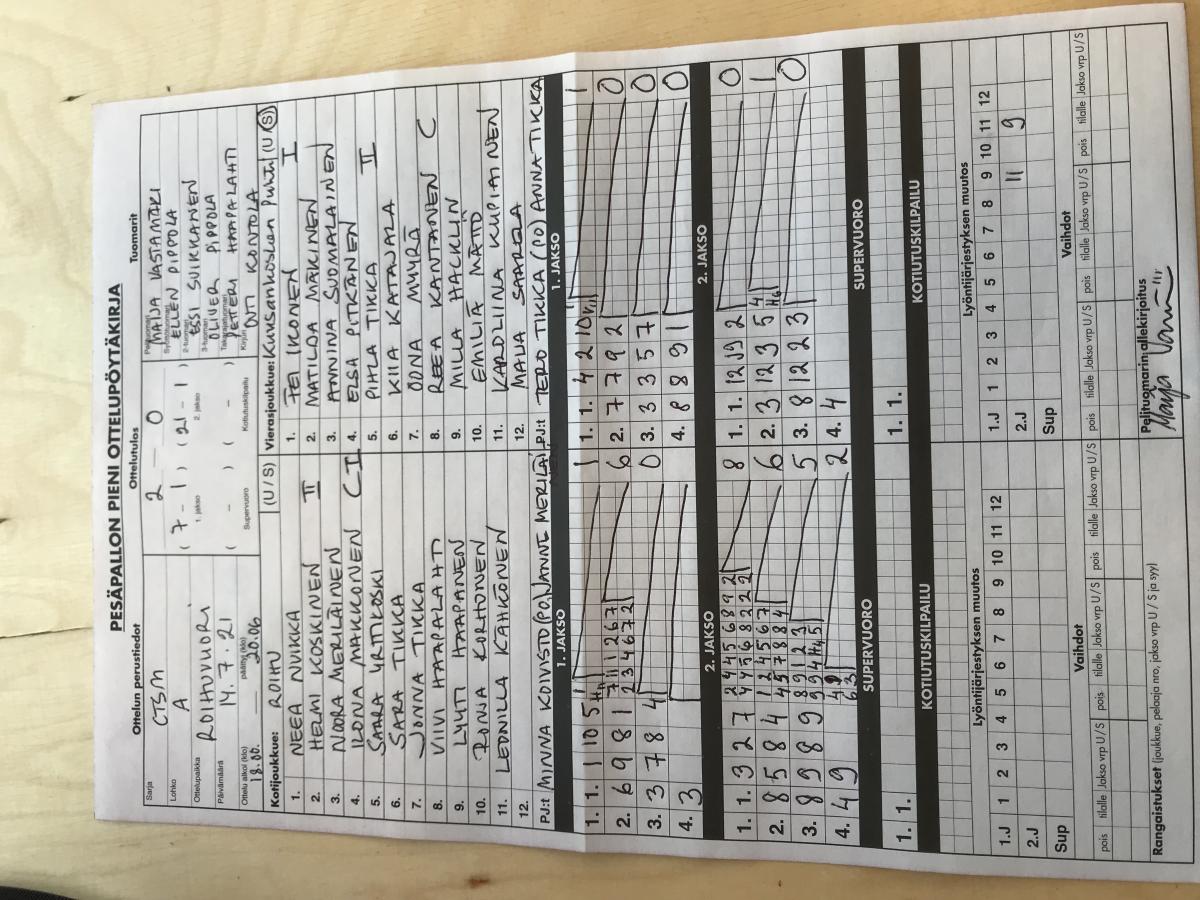 PESÄPALLON PIENI OTTELUPÖYTÄKIRJA
Ottelun perustiedot
Sarja CTSM
Lohko A
Ottelupaikka ROIHUVUORI
Päivämäärä 14.7.21
Ottelu alkoi (klo) 18.00. päättyi (klo) 20.06
Ottelutulos
2 – 0
( 7 – 1 ) ( 21 – 1 )
1. jakso 2. jakso
( – ) ( – )
Supervuoro Kotiutuskilpailu
Tuomarit
Pelituomari MAIJA VASTAMÄKI
Syöttötuomari ELLEN PIPPOLA
2-tuomari ESSI SUIKKANEN
3-tuomari OLIVER PIPPOLA
Takarajatuomari PETTERI HAAPALAHTI
Kirjuri OUTI KONTOLA
Kotijoukkue: ROIHU (U / S)
1. NEEA NUIKKA
2. HELMI KOSKINEN II
3. NOORA MERILÄINEN
4. ILONA MAKKONEN C I
5. SAARA YRTTIKOSKI
6. SARA TIKKA
7. JONNA TIKKA
8. VIIVI HAAPALAHTI
9. LYYTI HAAPANEN
10. RONJA KORHONEN
11. LEONILLA KÄHKÖNEN
12.
PJ:t MINNA KOIVISTO (PO), JANNE MERILÄINEN
Vierasjoukkue: Kuusankosken Puhti (U / S)
1. PEI IKONEN I
2. MATILDA MÄKINEN
3. ANNINA SUOMALAINEN
4. ELSA PITKÄNEN
5. PIHLA TIKKA II
6. KIIA KATAJALA
7. OONA MUYRÄ
8. REEA KANTANEN C
9. MILLA HACKLIN
10. EMILIA MÄTTÖ
11. KAROLIINA KUPIAINEN
12. MAIJA SAARELA
PJ:t TERO TIKKA (PO) ANNA TIKKA
1. JAKSO
1. 1. 1 10 5 1
2. 6 9 8 1 6
7 1 1 2 6 7
2 3 4 6 7 2
3. 3 7 8 4 0
4. 3
1. JAKSO
1. 1. 4 2 10 1
2. 7 7 9 2 0
3. 3 3 5 7 0
4. 8 8 9 1 0
2. JAKSO
1. 1. 3 2 7 8
2 4 4 5 6 8 9 2
4 4 5 6 8 2 2 2
2. 8 5 8 4 6
1 2 4 5 6 7
4 5 7 8 8 4
3. 8 9 8 9 5
8 9 1 2 3
9 9 4 H4 5
4. 4 9 2
2. JAKSO
1. 1. 12 12 9 2 0
2. 3 12 3 5 1
3. 8 12 2 3 0
4. 4
SUPERVUORO
1. 1.
SUPERVUORO
1. 1.
KOTIUTUSKILPAILU
KOTIUTUSKILPAILU
Lyöntijärjestyksen muutos
1.J 1 2 3 4 5 6 7 8 9 10 11 12
2.J
Sup
Lyöntijärjestyksen muutos
1.J 1 2 3 4 5 6 7 8 9 10 11 12
2.J 11 9
Sup
Vaihdot
pois tilalle Jakso vrp U / S pois tilalle Jakso vrp U / S pois tilalle Jakso vrp U / S
Vaihdot
pois tilalle Jakso vrp U / S pois tilalle Jakso vrp U / S pois tilalle Jakso vrp U / S
Rangaistukset (joukkue, pelaaja nro, jakso vrp U / S ja syy)
Pelituomarin allekirjoitus